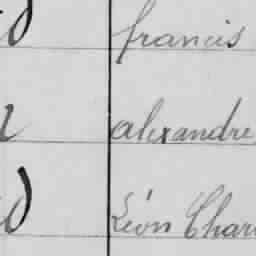 francis
alexandre
Léon Char